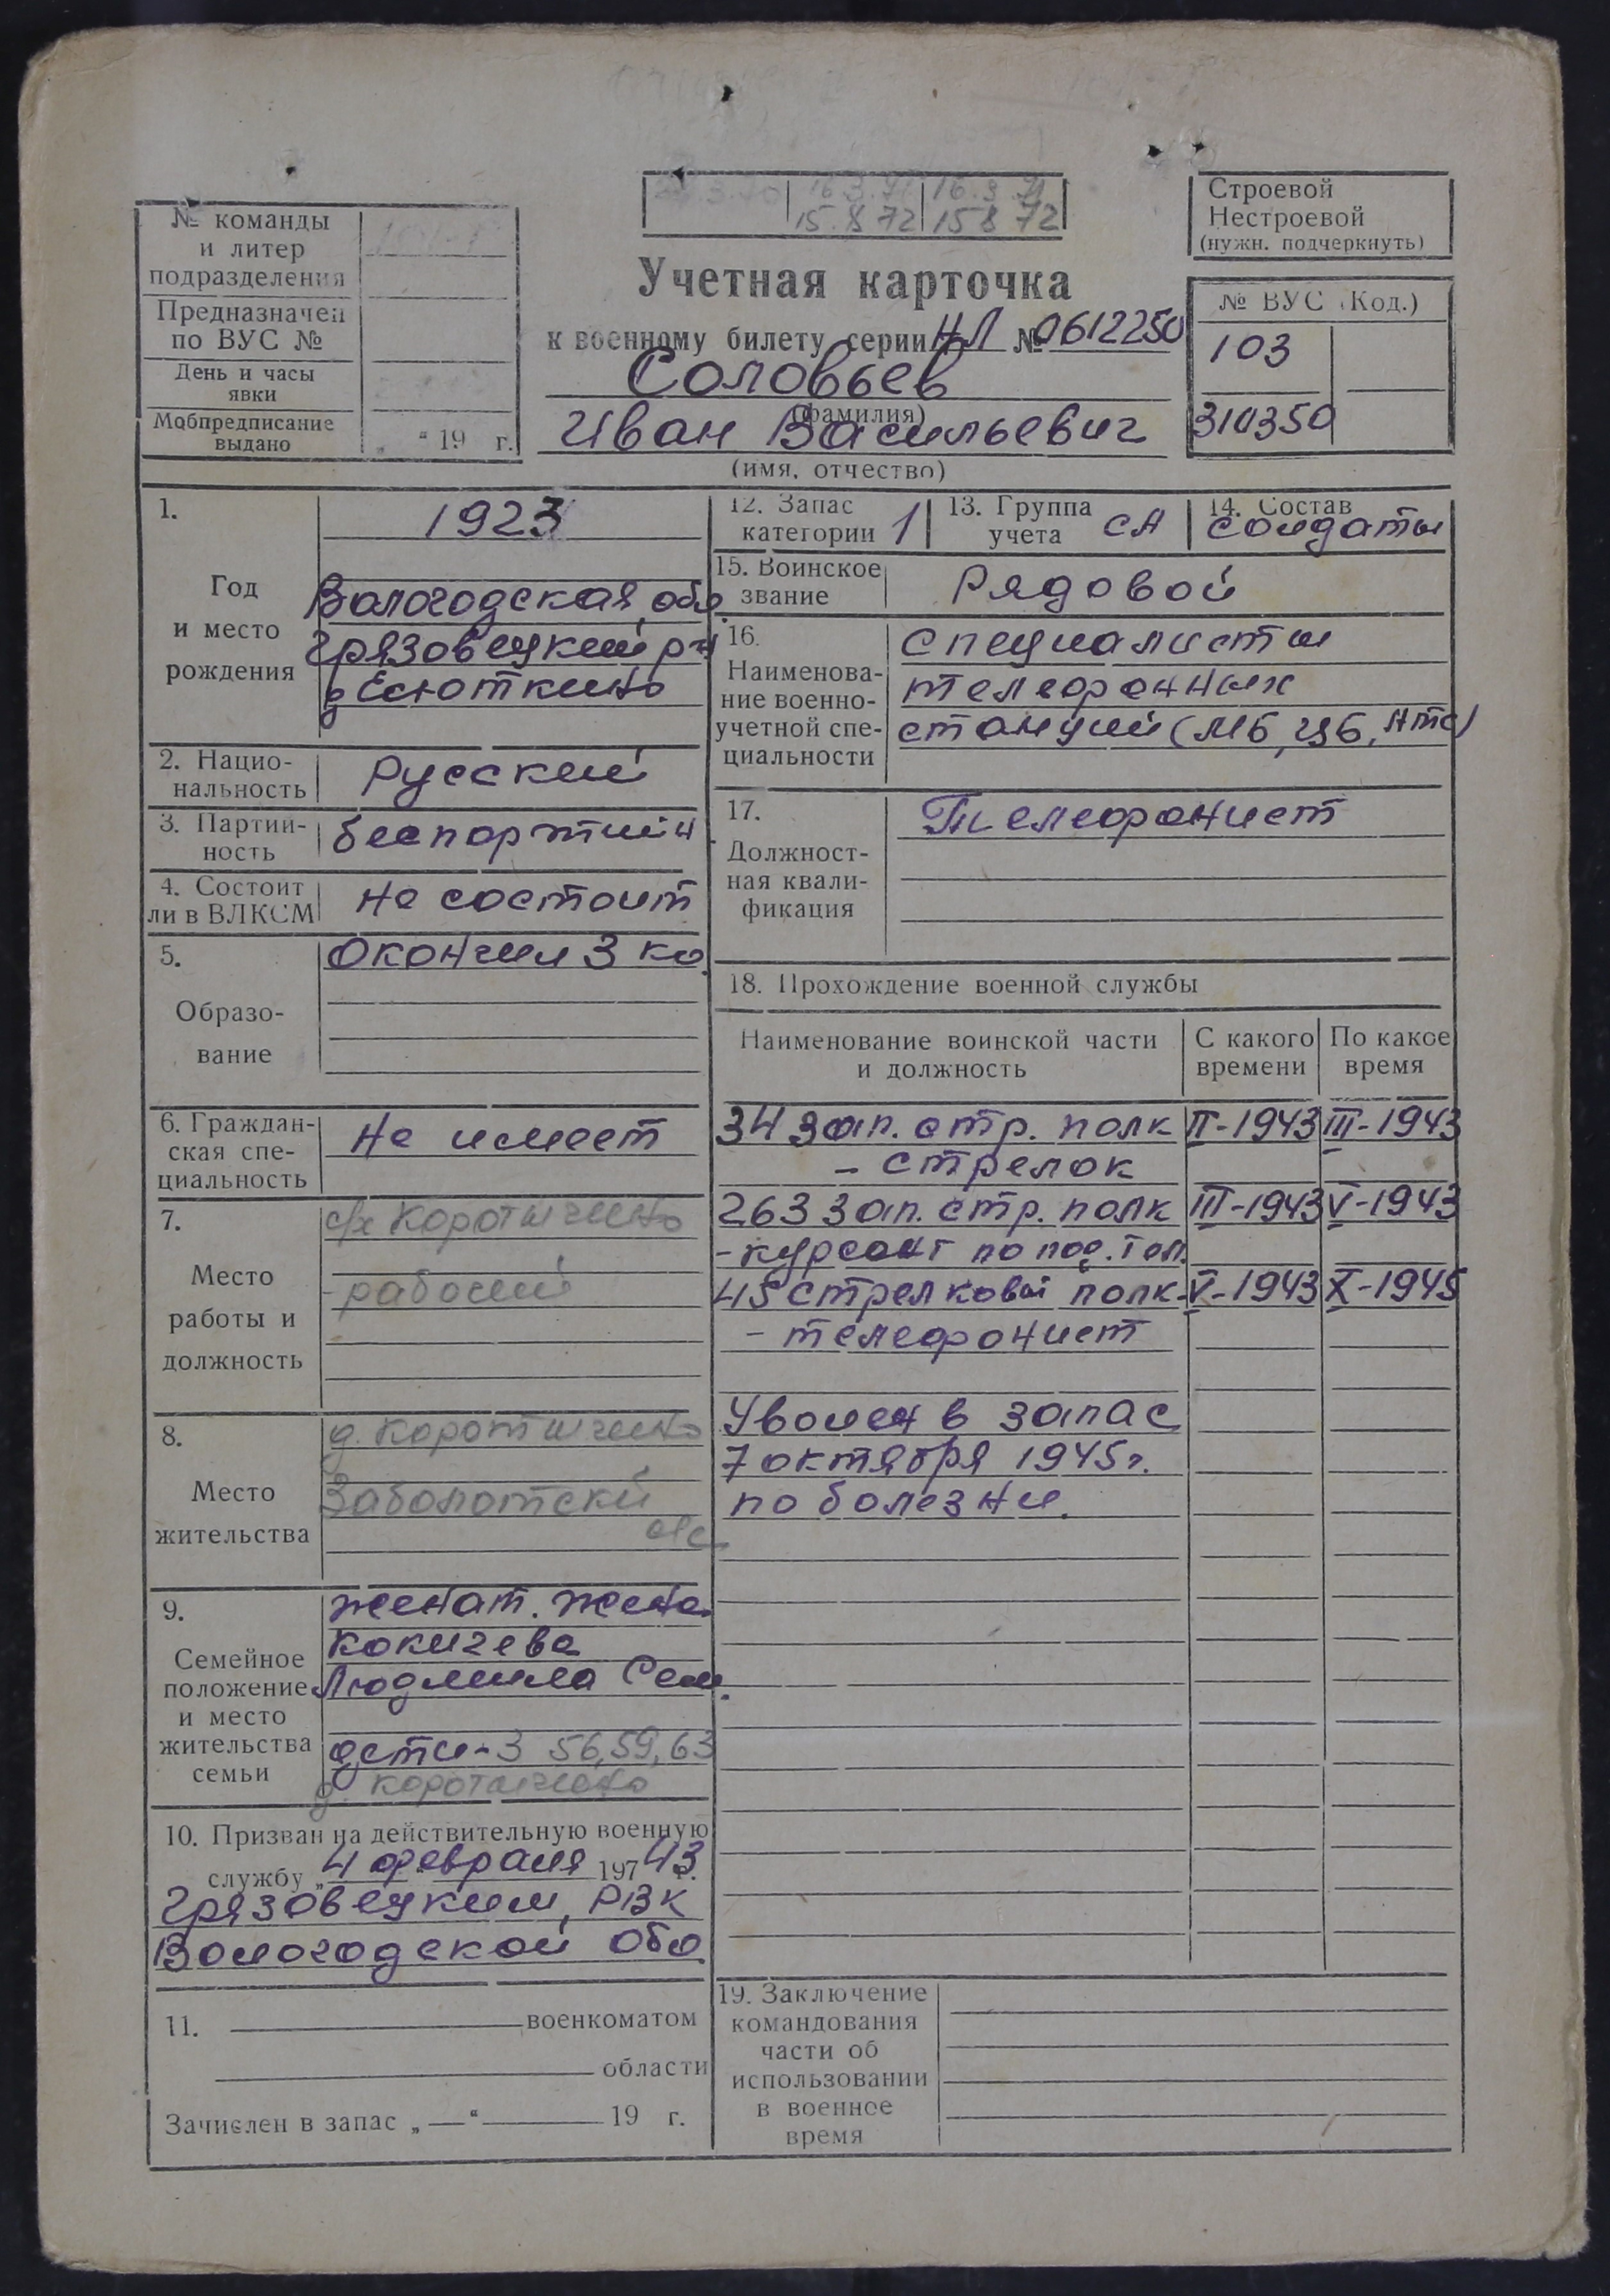 16.3.71 16.3.71
15.8 72 15 8 72
Строевой
Нестроевой
(нужн. подчеркнуть)
№ команды
и литер
подразделения
Предназначен
по ВУС №
День и часы
явки
Мобпредписание
выдано
„ “ 19 г.
Учетная карточка
к военному билету серии НЛ № 0612250
Соловьев
(фамилия)
Иван Васильевич
(имя, отчество)
№ ВУС (Код.)
103
310350
1.
Год
и место
рождения
1923
Вологодская обл.
Грязовецкий р-н
д Есюткино
2. Нацио-
нальность
Русский
3. Партий-
ность
беспартийн
4. Состоит
ли в ВЛКСМ
не состоит
5.
Образо-
вание
Окончил 3 кл.
6. Граждан-
ская спе-
циальность
Не имеет
7.
Место
работы и
должность
с/х Коротыгино
- рабочий
8.
Место
жительства
д. Коротыгино
Заболотский
с/с
9.
Семейное
положение
и место
жительства
семьи
женат. жена
Кокичева
Людмила Сем.
дети - 3 56,59,63
д. Коротыгино
10. Призван на действительную военную
службу „4 февраля 197 43 г.
Грязовецким, РВК
Вологодской обл
11. военкоматом
области
Зачислен в запас „—“ 19 г.
12. Запас
категории 1
13. Группа
учета СА
14. Состав
солдаты
15. Воинское
звание
Рядовой
16.
Наименова-
ние военно-
учетной спе-
циальности
специалисты
телефонных
станций (МБ, ЦБ, АТС)
17.
Должност-
ная квали-
фикация
Телефонист
18. Прохождение военной службы
Наименование воинской части
и должность
С какого
времени
По какое
время
34 зап. стр. полк II-1943 III-1943
- стрелок
263 зап. стр. полк III-1943 V-1943
- курсант по
45 стрелковый полк - V-1943 X-1945
- телефонист
Уволен в запас
7 октября 1945г.
по болезни.
19. Заключение
командования
части об
использовании
в военное
время